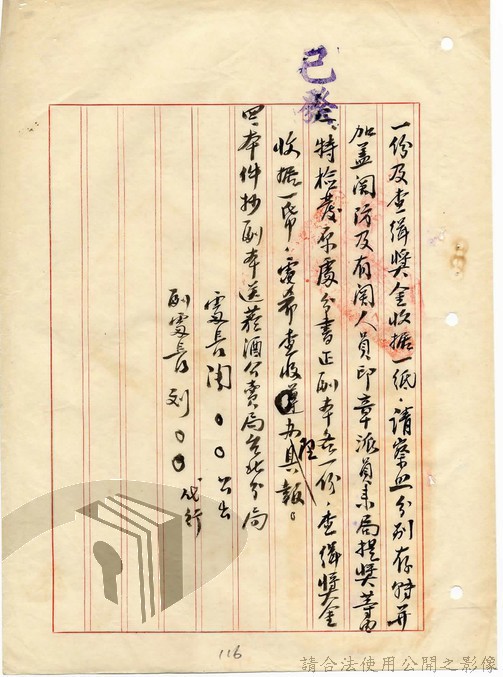 已發
一份及查緝獎金收據一紙。請察照分別存轉并
加蓋關防及有關人員印章派員來局提獎等由
特檢發原處分書正副本各一份。查緝獎金
收據一紙。電希查收辦理具報。
四、本件抄副本送菸酒公賣局台北分局
處長 〇〇 公出
副處長 列 〇〇 代行
116
請合法使用公開之影像